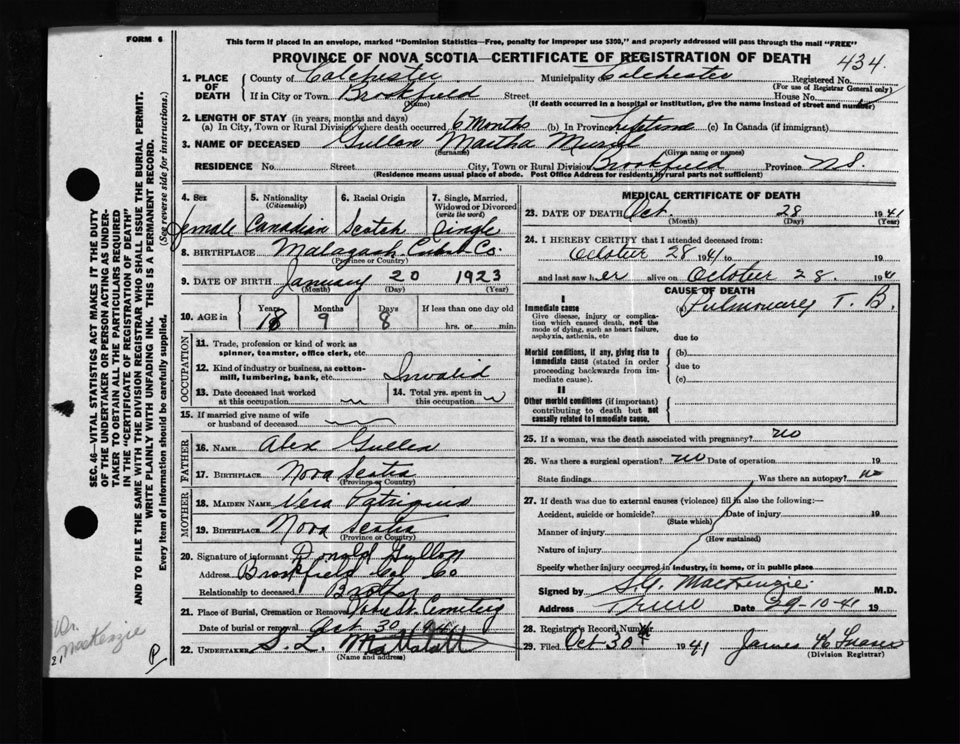 FORM 6
This form if placed in an envelope, marked "Dominion Statistics—Free, penalty for improper use $300," and properly addressed will pass through the mail "FREE"
PROVINCE OF NOVA SCOTIA—CERTIFICATE OF REGISTRATION OF DEATH
434
1. PLACE OF DEATH County of Colchester Municipality Colchester Registered No.
(For use of Registrar General only)
If in City or Town Brookfield Street House No.
(Name) (If death occurred in a hospital or institution, give the name instead of street and number)
2. LENGTH OF STAY (in years, months and days)
(a) In City, Town or Rural Division where death occurred 6 Months (b) In Province Lifetime (c) In Canada (if immigrant)
3. NAME OF DECEASED Martha
(Surname) (Given name or names)
RESIDENCE No. Street City, Town or Rural Division Brookfield Province N.S.
(Residence means usual place of abode. Post Office Address for residents by rural parts not sufficient)
4. Sex 5. Nationality (Citizenship) 6. Racial Origin 7. Single, Married, Widowed or Divorced (write the word)
Female Canadian Scotch Single
8. BIRTHPLACE Malagash Cumb Co.
(Province or Country)
9. DATE OF BIRTH January 20 1923
(Month) (Day) (Year)
10. AGE in Years Months Days If less than one day old
18 9 8 hrs. or min.
OCCUPATION
11. Trade, profession or kind of work as spinner, teamster, office clerk, etc.
12. Kind of industry or business, as cotton-mill, lumbering, bank, etc. Invalid
13. Date deceased last worked at this occupation
14. Total yrs. spent in this occupation
15. If married give name of wife or husband of deceased
FATHER
16. NAME Alex
17. BIRTHPLACE Nova Scotia
(Province or Country)
MOTHER
18. MAIDEN NAME Vera Patriquin
19. BIRTHPLACE Nova Scotia
(Province or Country)
20. Signature of informant Donald
Address Brookfield Col Co
Relationship to deceased Brother
21. Place of Burial, Cremation or Removal Cemetery
Date of burial or removal Oct 30 1941
22. UNDERTAKER S. L. Mattatall
(Name and address)
MEDICAL CERTIFICATE OF DEATH
23. DATE OF DEATH Oct. 28 1941
(Month) (Day) (Year)
24. I HEREBY CERTIFY that I attended deceased from:
October 28 1941 to
and last saw her alive on October 28. 1941
CAUSE OF DEATH
I
Immediate cause (a) Pulmonary T. B.
Give disease, injury or complication which caused death, not the mode of dying, such as heart failure, asphyxia, asthenia, etc
due to
Morbid conditions, if any, giving rise to immediate cause (stated in order proceeding backwards from immediate cause).
(b)
due to
(c)
II
Other morbid conditions (if important) contributing to death but not causally related to immediate cause.
25. If a woman, was the death associated with pregnancy? no
26. Was there a surgical operation? no Date of operation 19
State findings Was there an autopsy? no
27. If death was due to external causes (violence) fill in also the following:—
Accident, suicide or homicide? Date of injury 19
(State which)
Manner of injury
(How sustained)
Nature of injury
Specify whether injury occurred in industry, in home, or in public place
Signed by MacKenzie. M.D.
Address Truro Date 29-10-41 19
28. Registrar's Record Number
29. Filed Oct 30th 1941 James K
(Division Registrar)
SEC. 46—VITAL STATISTICS ACT MAKES IT THE DUTY
OF THE UNDERTAKER OR PERSON ACTING AS UNDER-
TAKER TO OBTAIN ALL THE PARTICULARS REQUIRED
IN THE "CERTIFICATE OF REGISTRATION OF DEATH"
AND TO FILE THE SAME WITH THE DIVISION REGISTRAR WHO SHALL ISSUE THE BURIAL PERMIT.
WRITE PLAINLY WITH UNFADING INK. THIS IS A PERMANENT RECORD.
Every item of information should be carefully supplied. (See reverse side for instructions.)
Dr.
MacKenzie
21
P